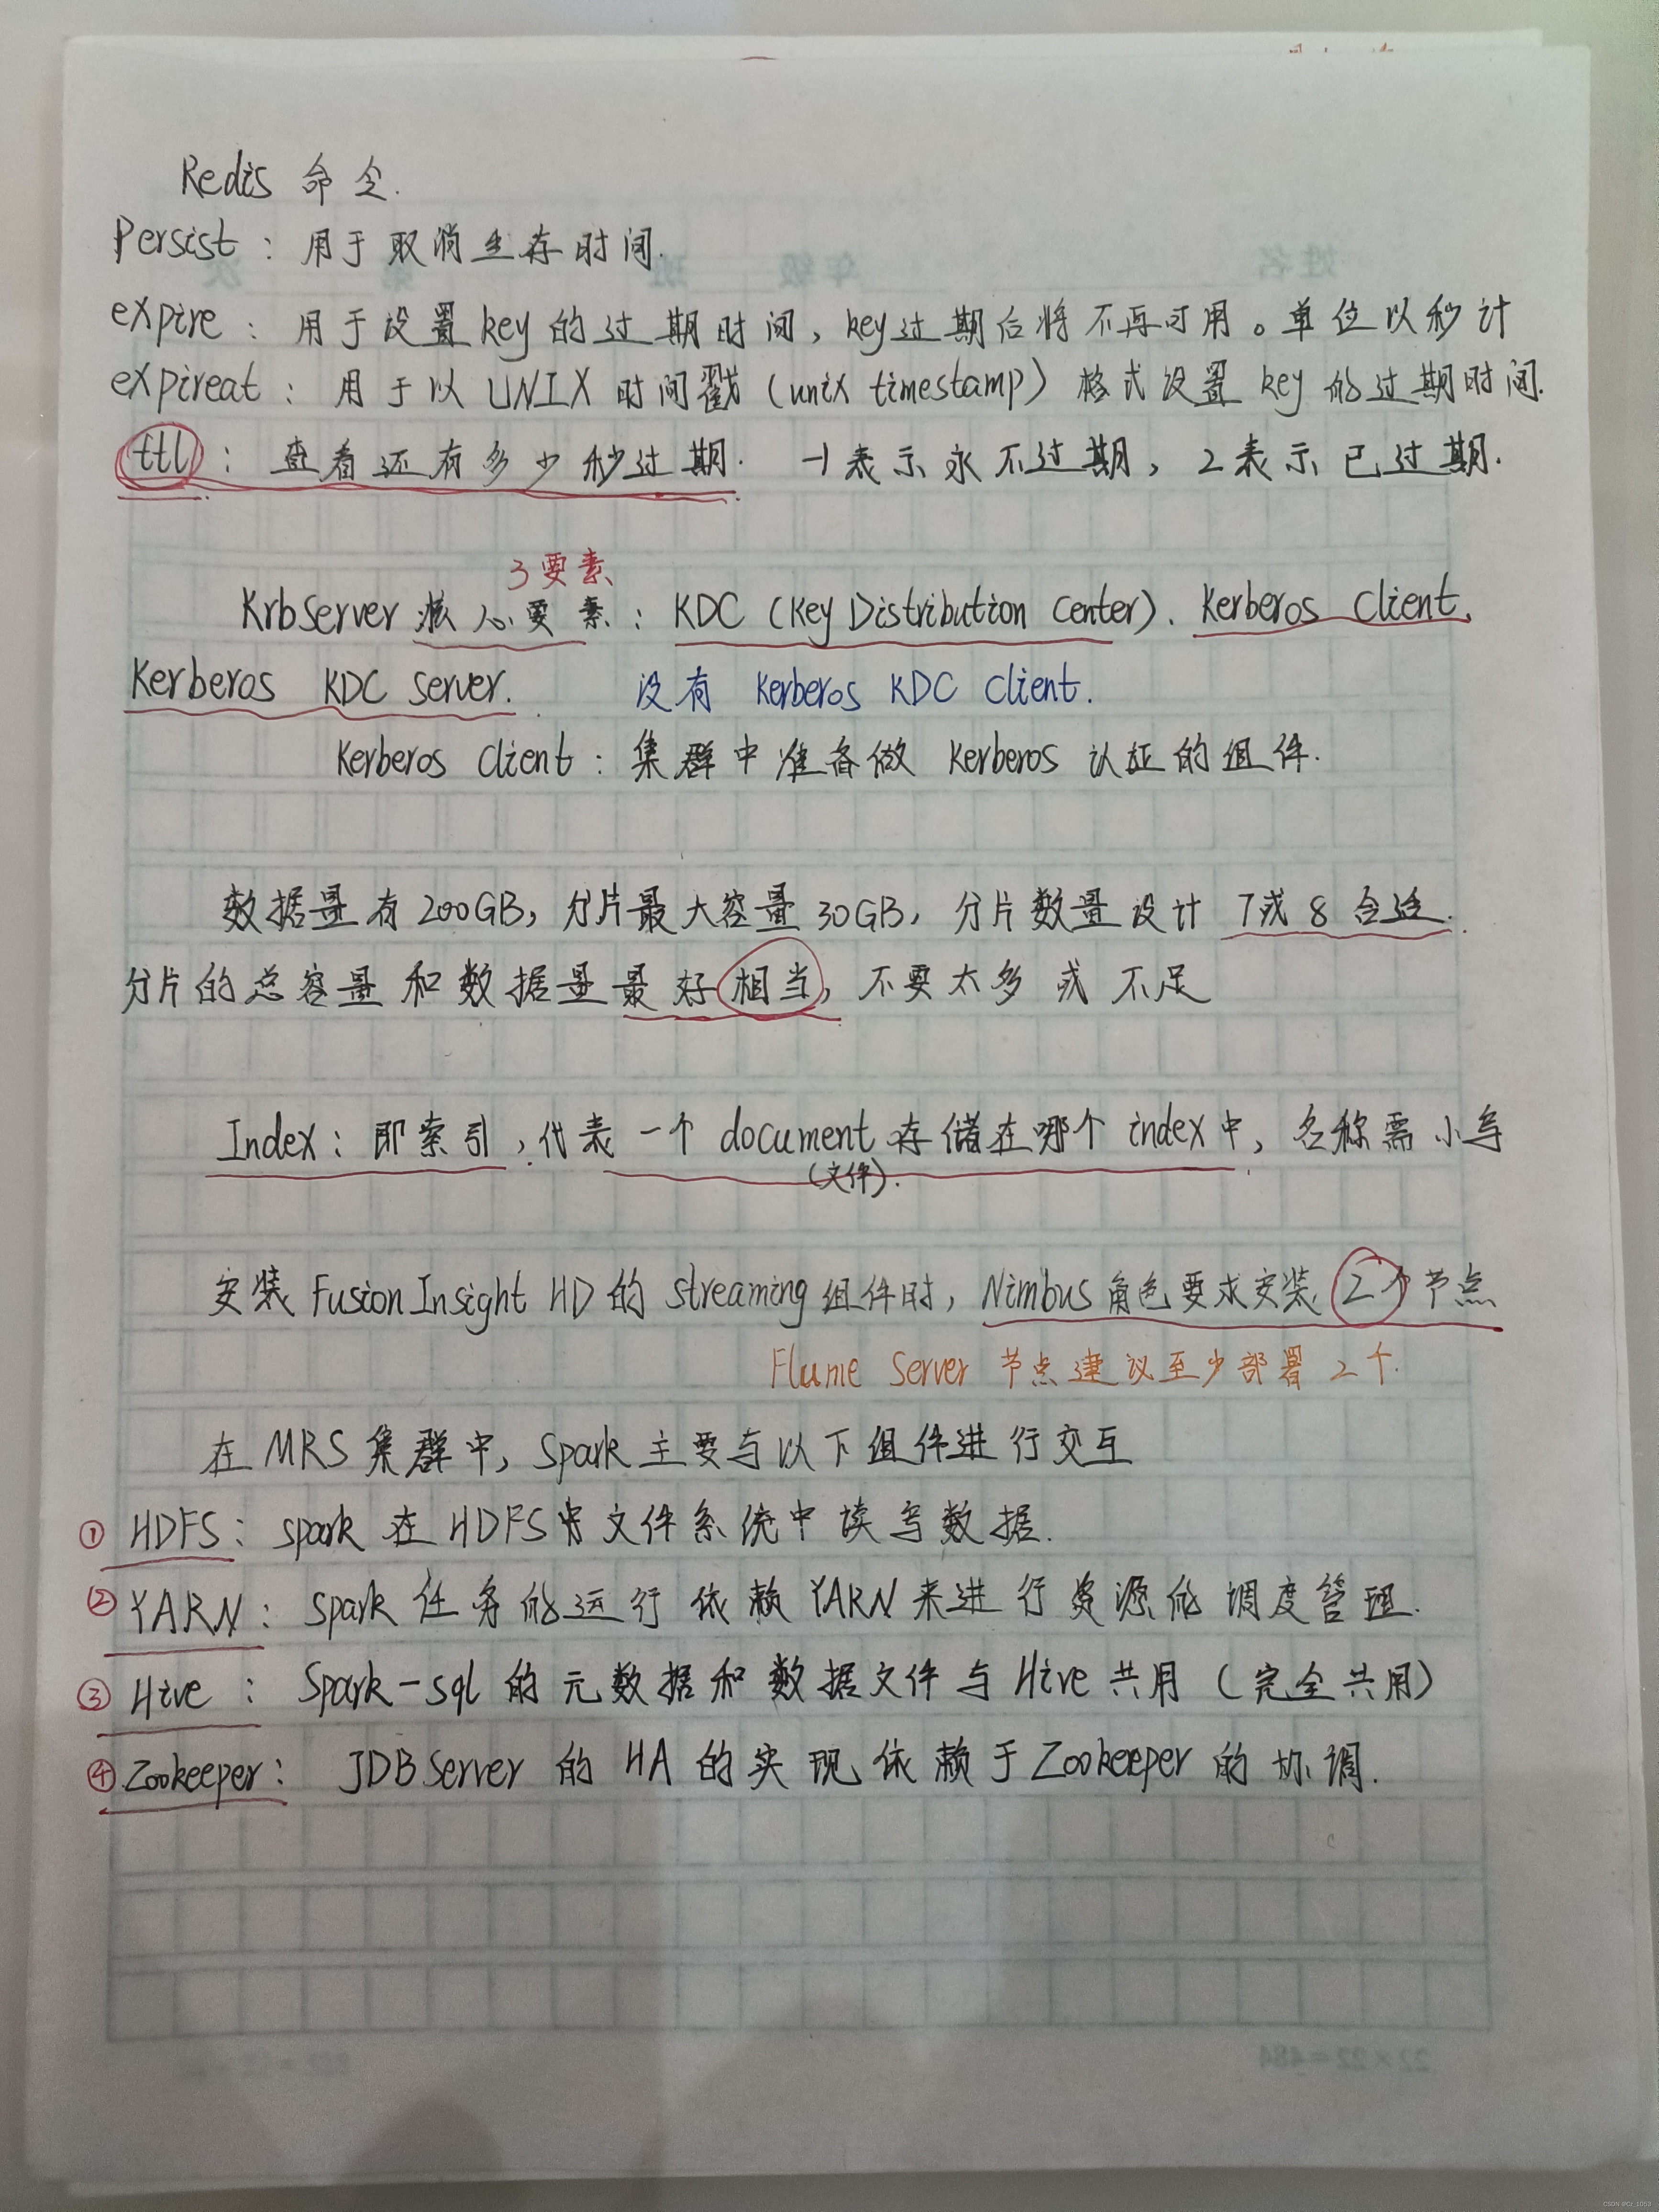 Redis 命令.
Persist：用于取消生存时间.
expire：用于设置key的过期时间，key过期后将不再可用。单位以秒计
expireat：用于以UNIX时间戳（unix timestamp）格式设置key的过期时间.
ttl：查看还有多少秒过期. -1表示永不过期，2表示已过期.
3要素
KrbServer核心要素：KDC（Key Distribution Center）、Kerberos Client、
Kerberos KDC Server. 没有 Kerberos KDC Client.
Kerberos Client：集群中准备做 Kerberos 认证的组件.
数据量有200GB，分片最大容量30GB，分片数量设计 7或8合适.
分片的总容量和数据量最好相当，不要太多或不足
Index：即索引，代表一个document存储在哪个index中，名称需小写
（文件）.
安装FusionInsight HD的Streaming组件时，Nimbus角色要求安装2个节点
Flume Server 节点建议至少部署2个.
在MRS集群中，Spark主要与以下组件进行交互
① HDFS：spark在HDFS文件系统中读写数据.
② YARN：Spark任务的运行依赖YARN来进行资源的调度管理.
③ Hive：Spark-sql的元数据和数据文件与Hive共用（完全共用）
④ Zookeeper：JDBServer的HA的实现依赖于Zookeeper的协调.
22×22=484